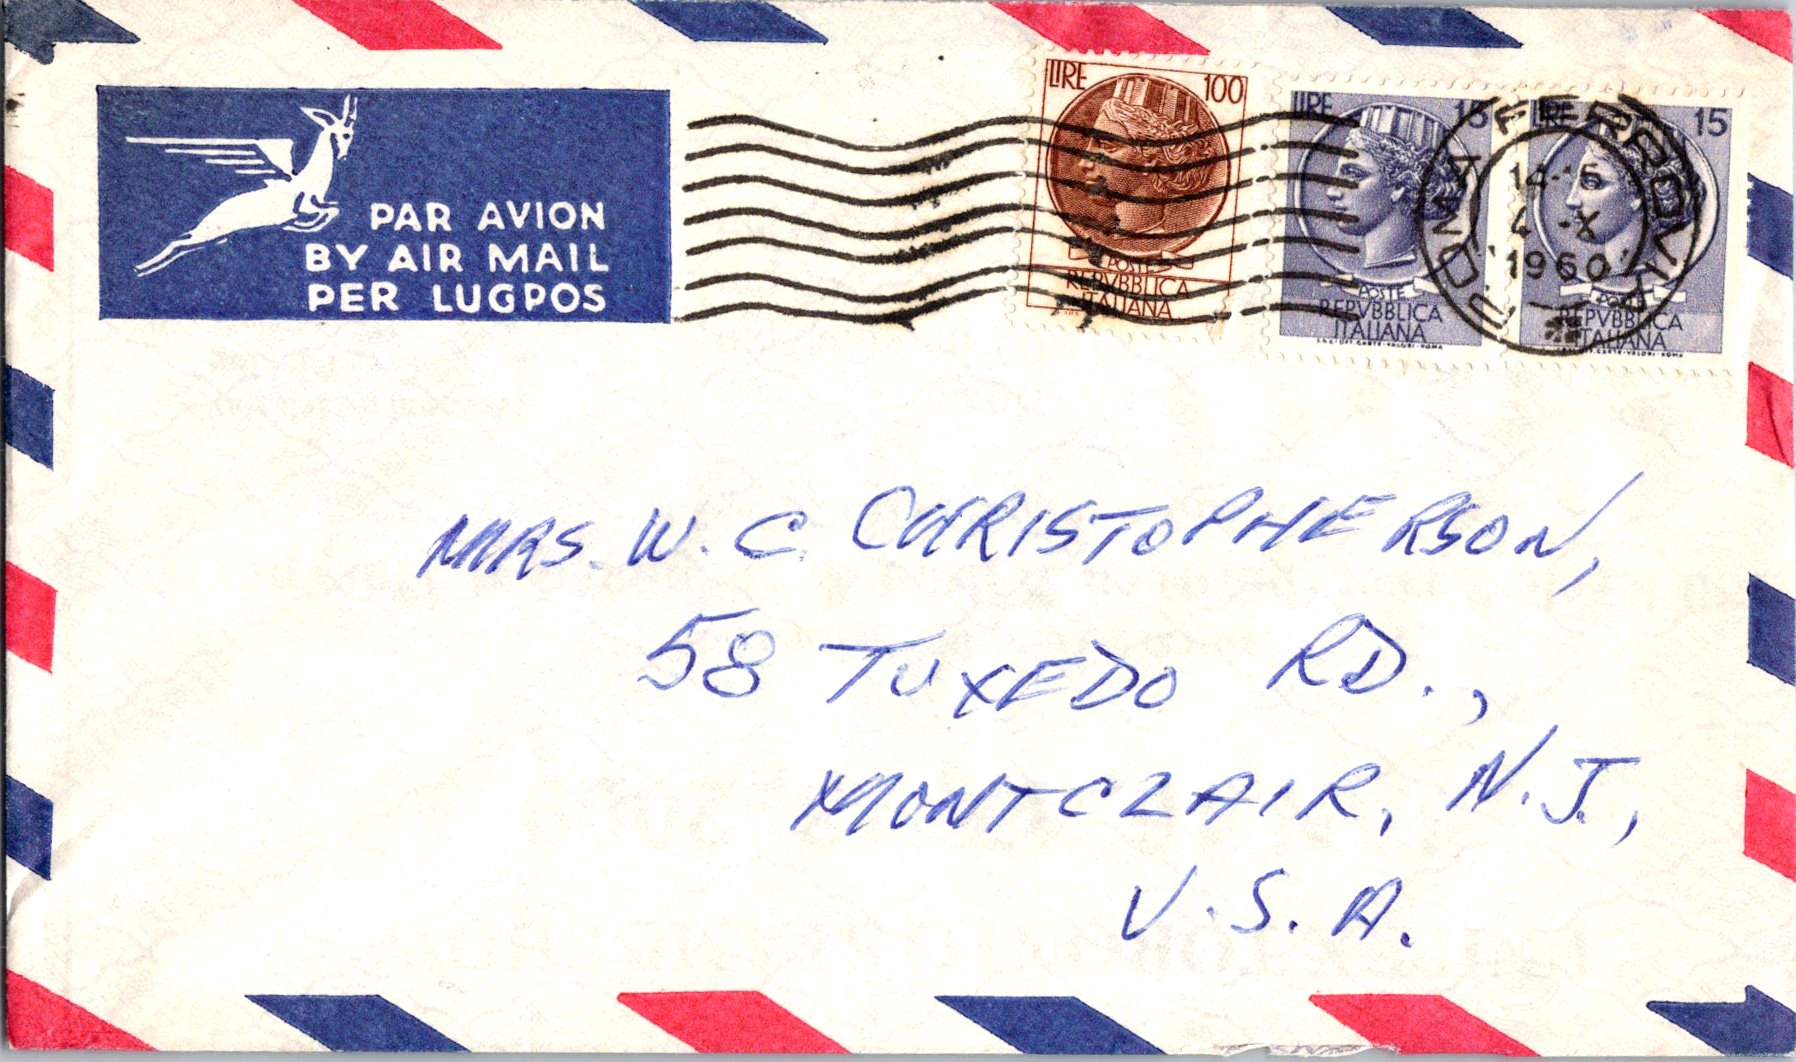 PAR AVION
BY AIR MAIL
PER LUGPOS
LIRE 100
POSTE
REPVBBLICA
ITALIANA
LIRE 15
POSTE
REPVBBLICA
ITALIANA
LIRE 15
POSTE
REPVBBLICA
ITALIANA
ROMA FERROVIA
4 -X
1960
MRS. W. C. CHRISTOPHERSON,
58 TUXEDO RD.,
MONTCLAIR, N.J.,
U.S.A.